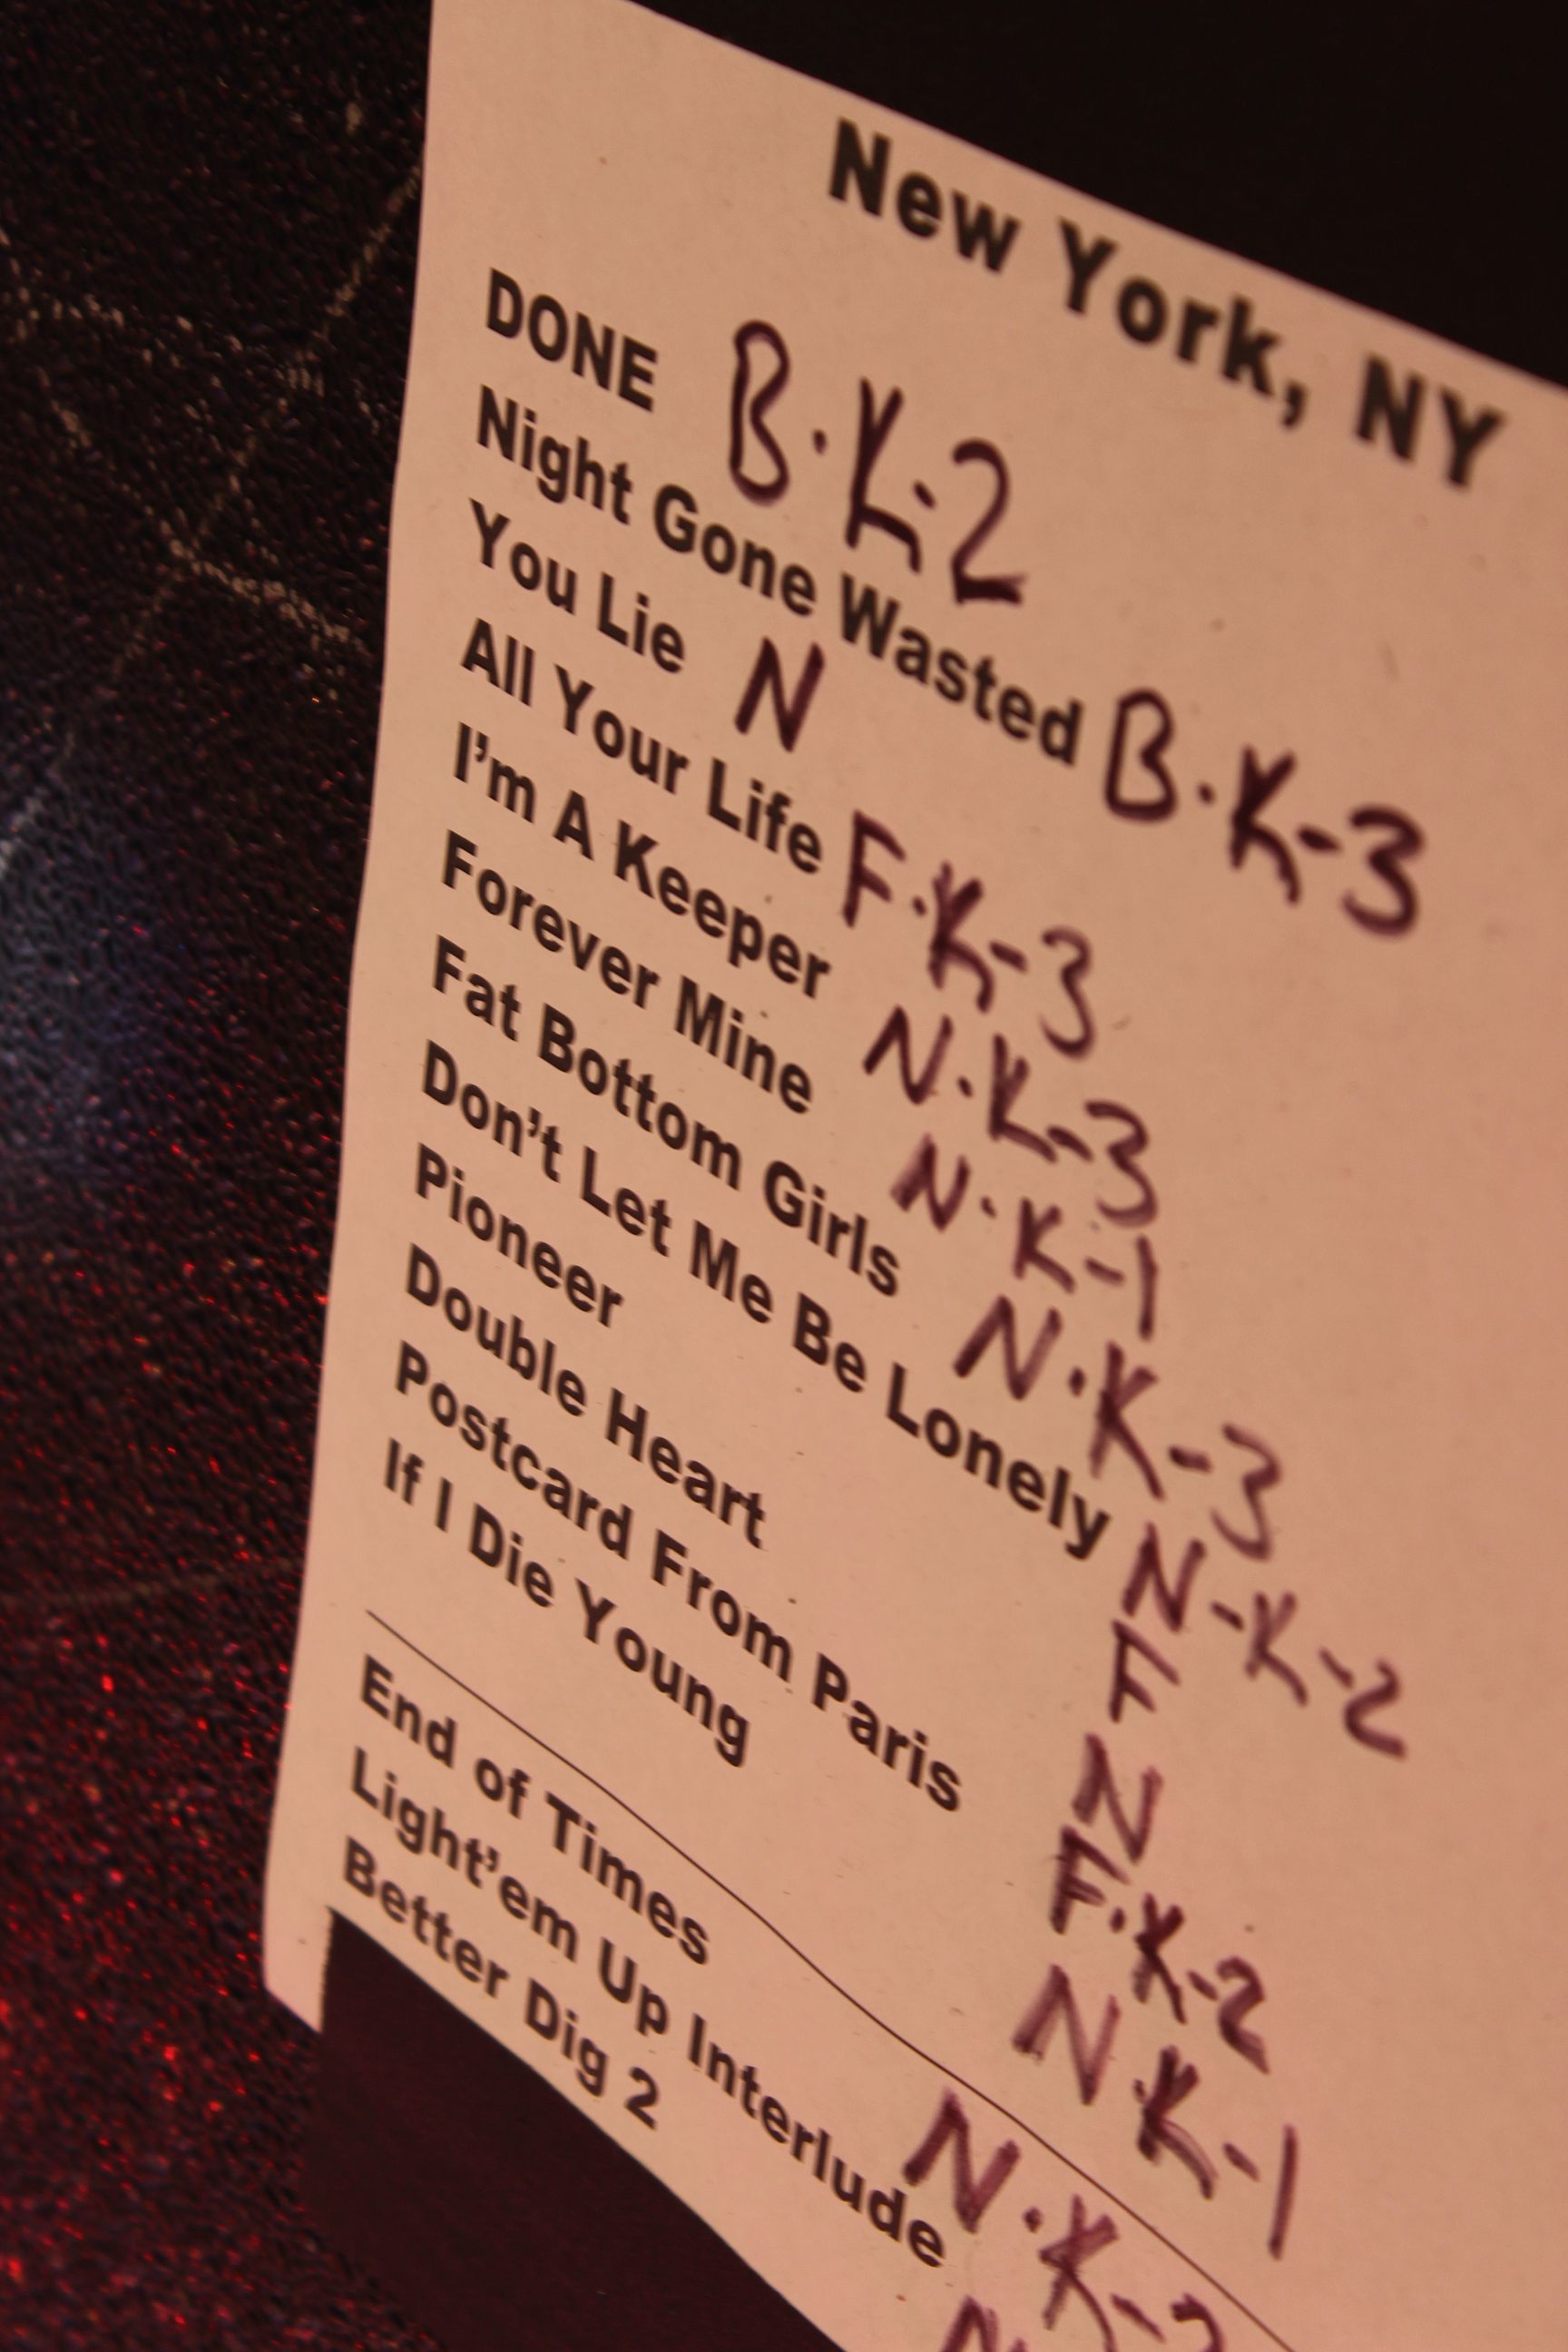 New York, NY
DONE B·K-2
Night Gone Wasted B·K-3
You Lie N
All Your Life F·K-3
I'm A Keeper N·K-3
Forever Mine N·K-1
Fat Bottom Girls N·K-3
Don't Let Me Be Lonely N-K-2
Pioneer F
Double Heart N
Postcard From Paris F·K-2
If I Die Young N·K-1
End of Times N·K-
Light'em Up Interlude
Better Dig 2